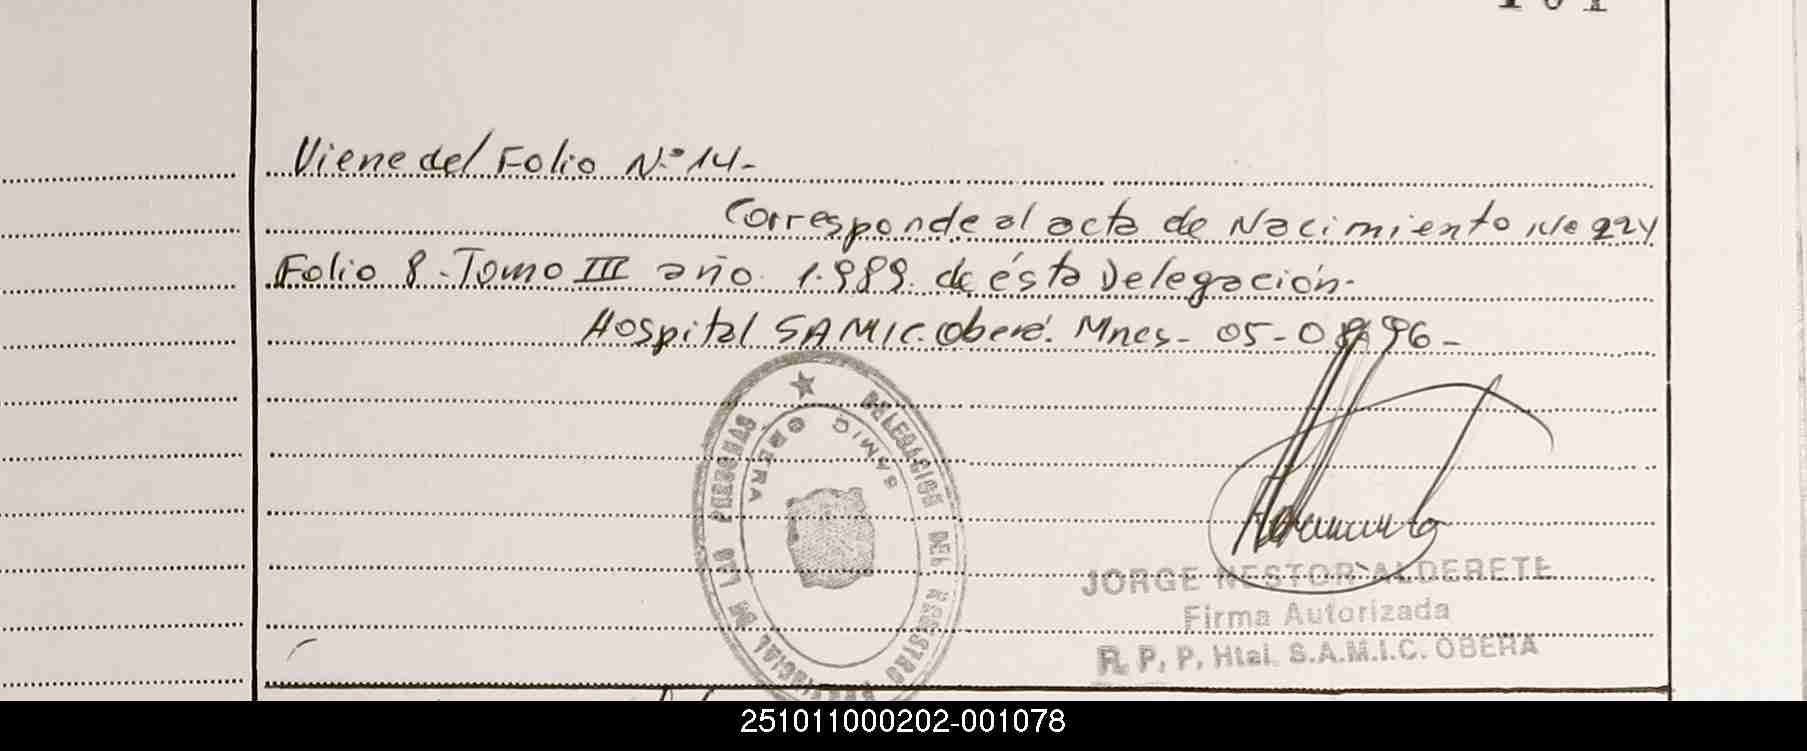 Viene del Folio N.º 14-
Corresponde al acta de Nacimiento
Folio 8 - Tomo III año 1.989 de ésta Delegación-
Hospital SAMIC. Oberá. Mnes-
DELEGACION DEL REGISTRO PROVINCIAL DE LAS PERSONAS
S.A.M.I.C. OBERA
JORGE NESTOR ALDERETE
Firma Autorizada
R. P. P. Htal. S.A.M.I.C. OBERA
251011000202-001078